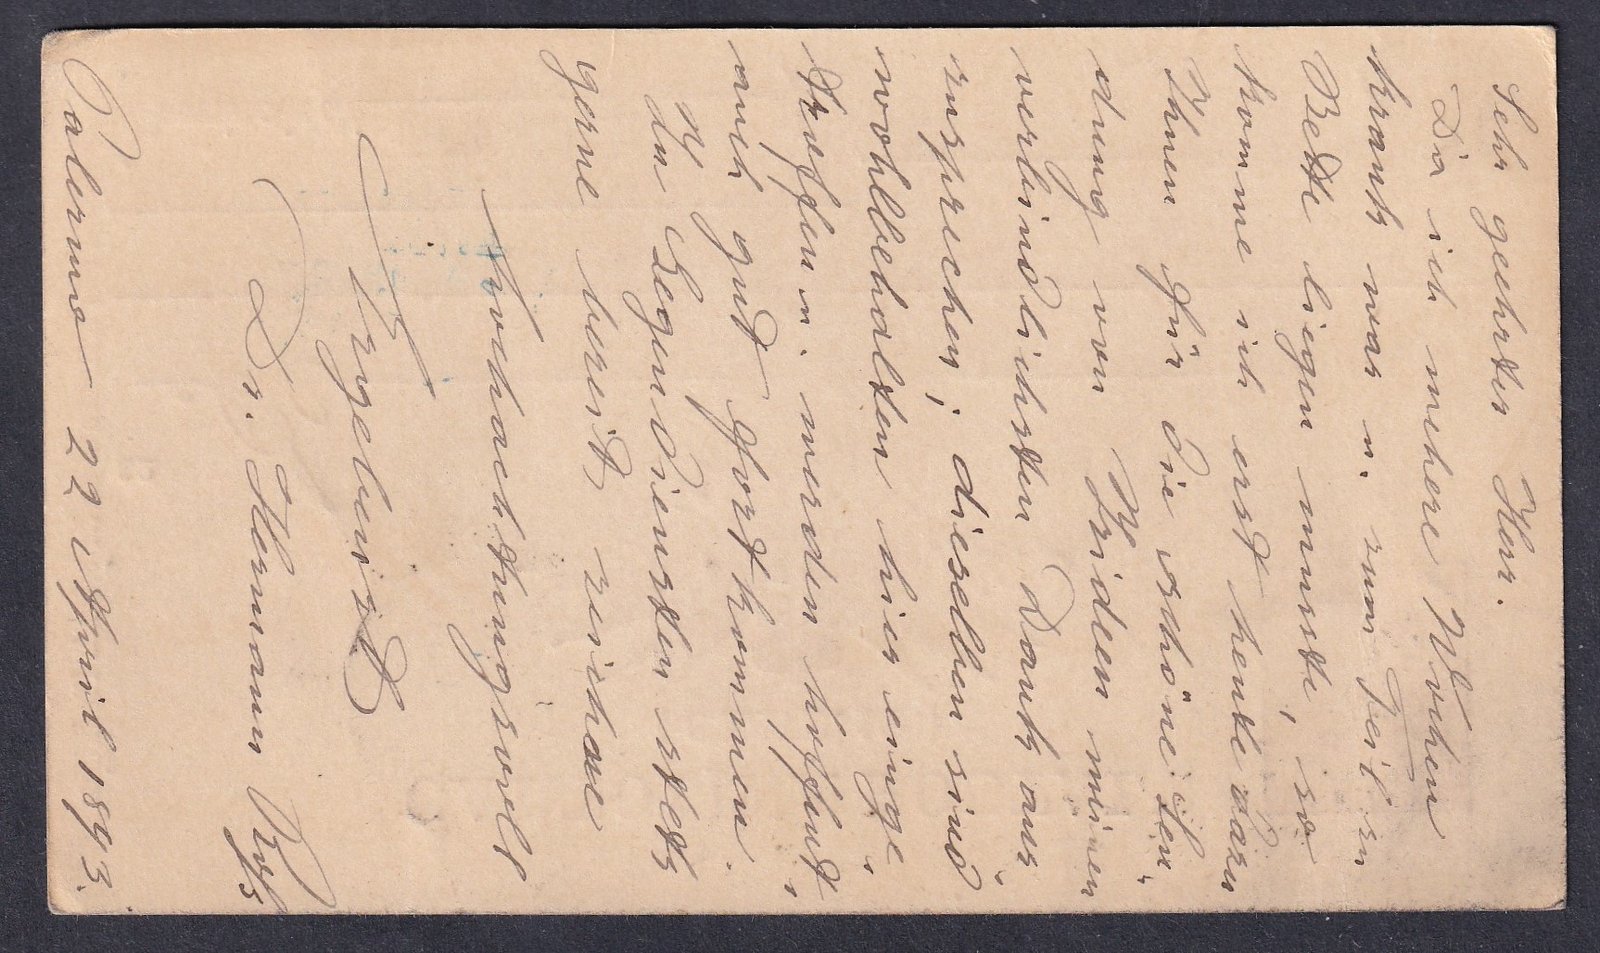 Sehr geehrter Herr.
Da ich mehere Wochen
krank war u. zum Teil zu
Bette liegen musste, so
komme ich erst heute dazu
Ihnen für die schöne Sen-
dung von Irideen meinen
verbindlichsten Dank aus-
zusprechen; dieselben sind
wohlbehalten hier einge-
troffen u. werden hoffent-
lich gut fortkommen.
Zu Gegendiensten stets
gerne bereit zeichne
Hochachtungsvoll
Ergebenst
Dr. Hermann Ross
Palermo 22 April 1893.